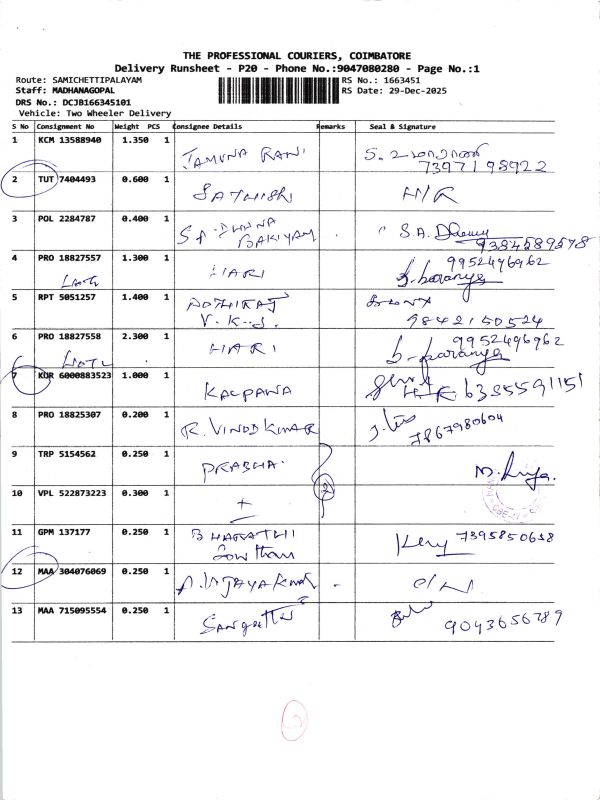 THE PROFESSIONAL COURIERS, COIMBATORE
Delivery Runsheet - P20 - Phone No.:9047080280 - Page No.:1
Route: SAMICHETTIPALAYAM
RS No.: 1663451
Staff: MADHANAGOPAL
RS Date: 29-Dec-2025
DRS No.: DCJB166345101
Vehicle: Two Wheeler Delivery
S No Consignment No Weight PCS Consignee Details Remarks Seal & Signature
1 KCM 13588940 1.350 1 JAMUNA RANI
7397193922
2 TUT 7404493 0.600 1 SATHISH
3 POL 2284787 0.400 1 BAKIYAM S.A.
9384589578
4 PRO 18827557 1.300 1 HARI 9952496962
5 RPT 5051257 1.400 1 JOTHIRAJ
V.K.J. 9842150524
6 PRO 18827558 2.300 1 HARI 9952496962
7 KUR 6000883523 1.000 1 KALPANA 6385591151
8 PRO 18825307 0.200 1 R. VINOD KUMAR 7867980604
9 TRP 5154562 0.250 1 PRABHA.
2
10 VPL 522873223 0.300 1
11 GPM 137177 0.250 1 BHARATHI
Gowtham 7395850658
12 MAA 304076069 0.250 1 A. VIJAYA KUMAR
13 MAA 715095554 0.250 1 Sangeetha
9043656789